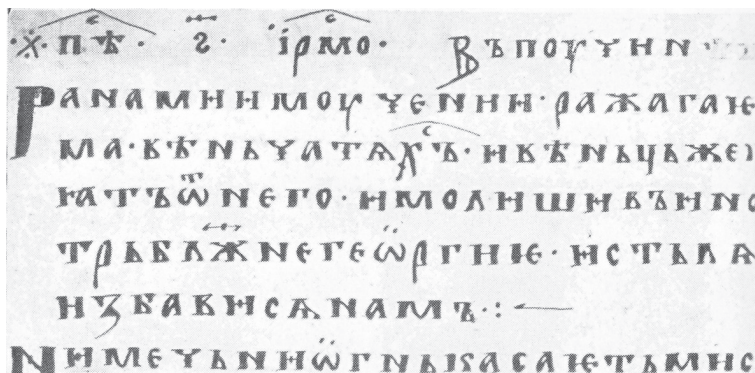 ·※·пѣ҇· ꙅ҃· ірмо҇· Въпоучин
Ранамиимоучении·ражагаѥ
ма·вѣньчатѧх҇ъ·ивѣньцьже
ꙗтъѿнего·имолишивъіно
трьблж҃негеѡ̈ргииѥ·истьлѧ
иꙁбависѧнамъ·:
Нимечьниѡ̈гнькасаѥтьмис